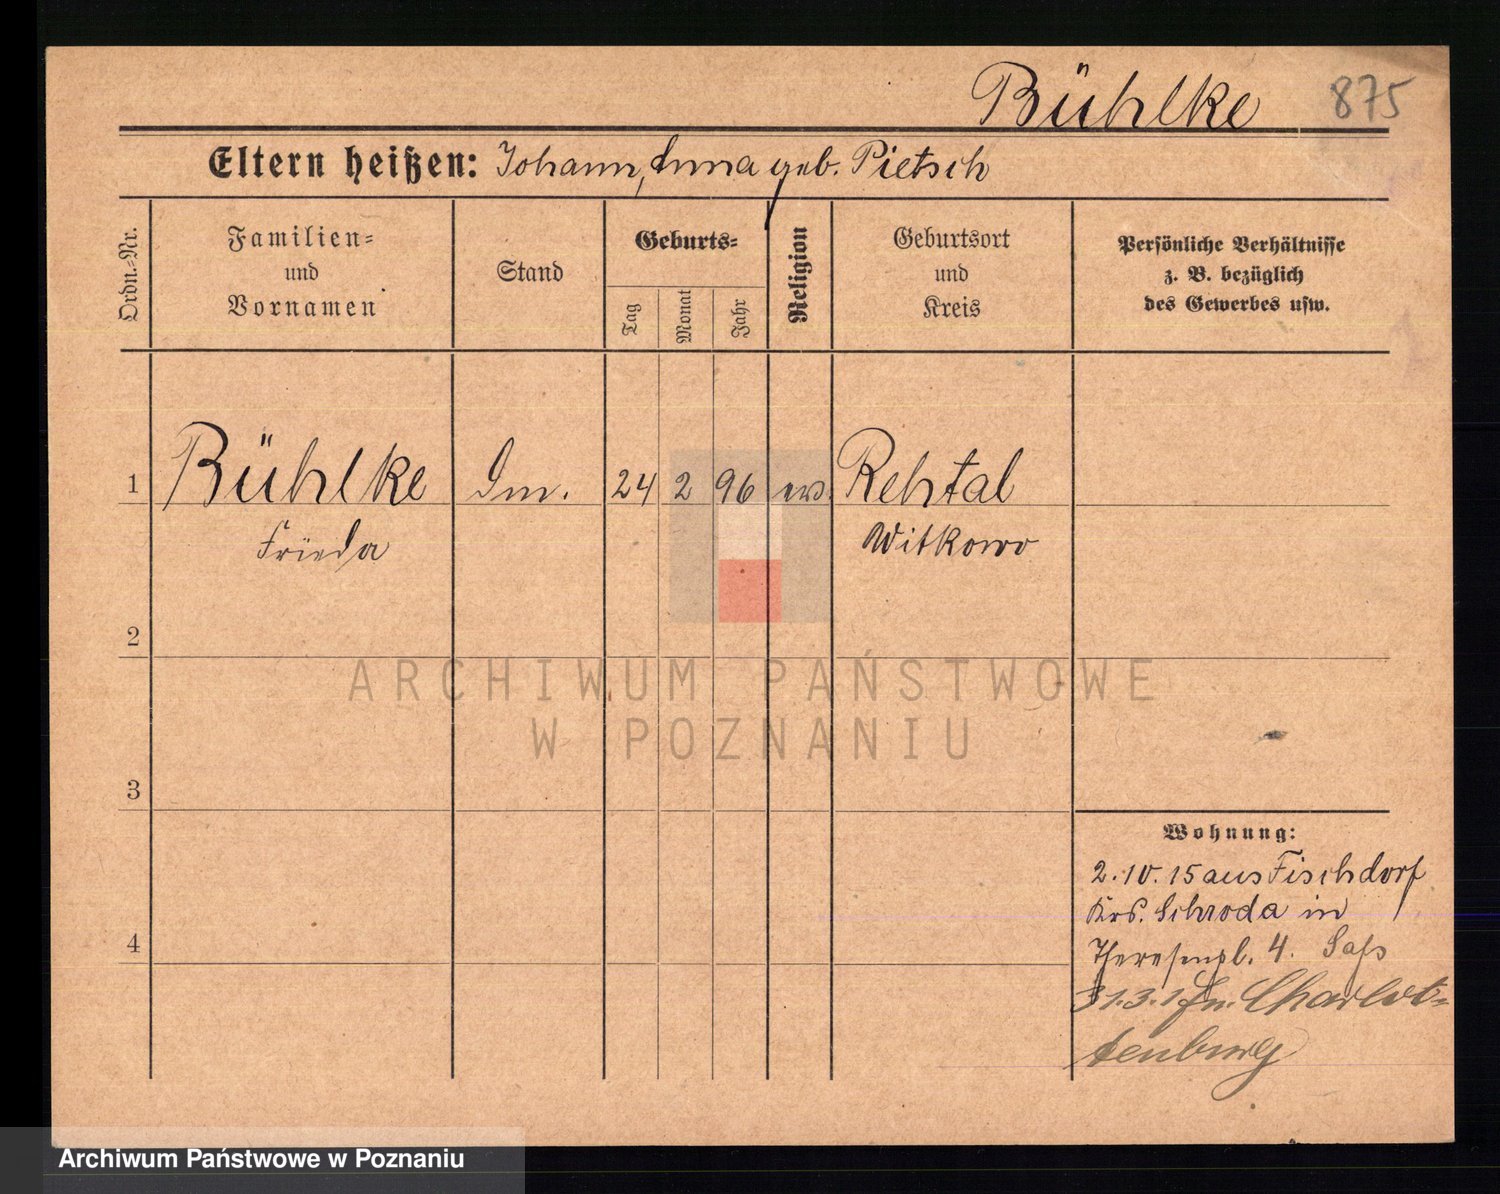 Bühlke 875
Eltern heißen: Johann, Anna geb. Pietsch
Ordn.-Nr.
Familien-
und
Vornamen
Stand
Geburts-
Tag
Monat
Jahr
Religion
Geburtsort
und
Kreis
Persönliche Verhältnisse
z. B. bezüglich
des Gewerbes usw.
1 Bühlke 24 2 96 Rehtal
Frieda Witkowo
2
3
4
Wohnung:
2.10.15 aus Fischdorf
Krs. Schroda in
Theresenpl. 4. Saß
31.3.1 n. Charlot-
tenburg
ARCHIWUM PAŃSTWOWE
W POZNANIU
Archiwum Państwowe w Poznaniu